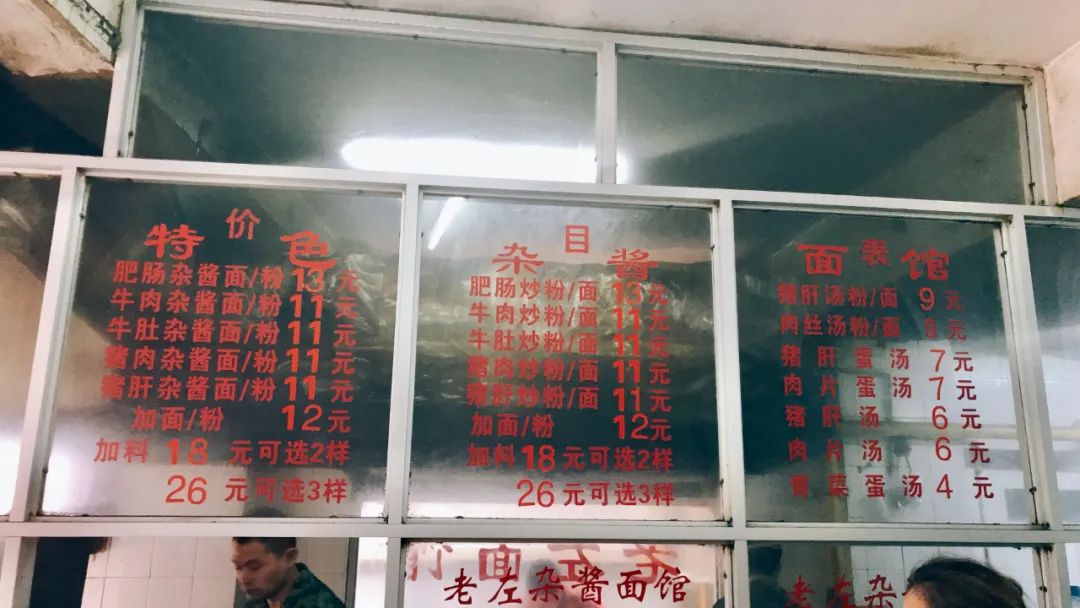 特价色
肥肠杂酱面/粉 13元
牛肉杂酱面/粉 11元
牛肚杂酱面/粉 11元
猪肉杂酱面/粉 11元
猪肝杂酱面/粉 11元
加面/粉 12元
加料 18 元可选2样
26 元可选3样
杂目酱
肥肠炒粉/面 13元
牛肉炒粉/面 11元
牛肚炒粉/面 11元
猪肉炒粉/面 11元
猪肝炒粉/面 11元
加面/粉 12元
加料 18 元可选2样
26 元可选3样
面表馆
猪肝汤粉/面 9元
肉丝汤粉/面 元
猪肝蛋汤 7元
肉片蛋汤 7元
猪肝汤 6元
肉片汤 6元
青菜蛋汤 4元
老左杂酱面馆
老左杂